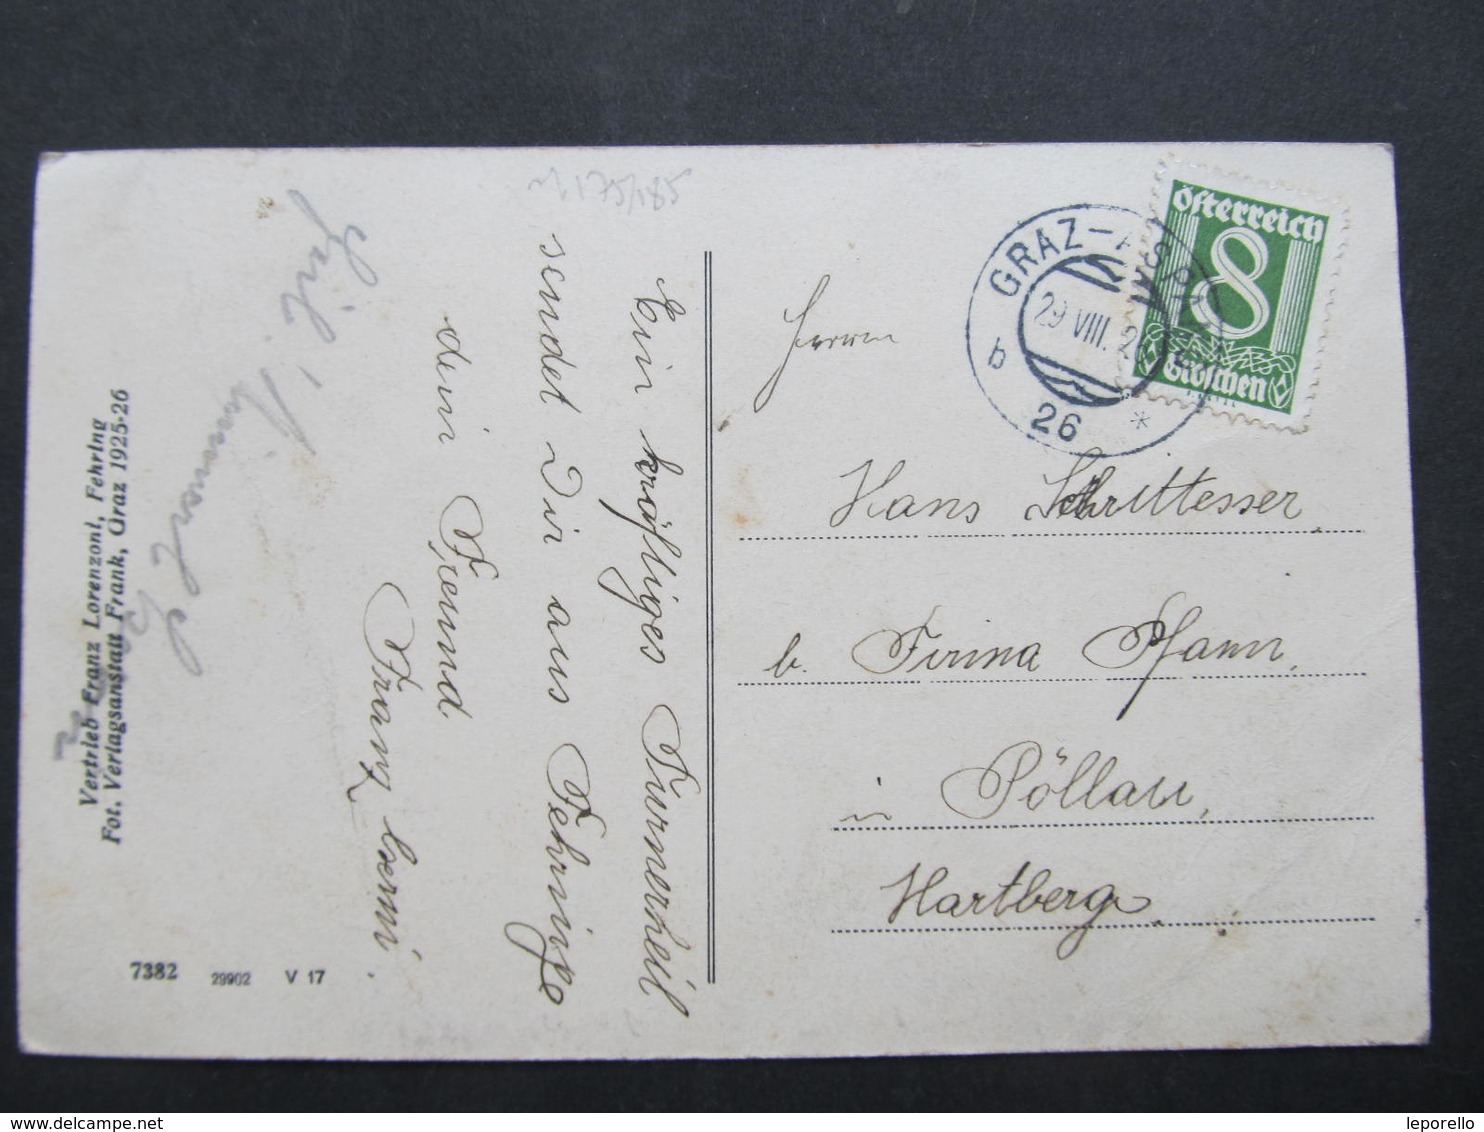 Ein kräftiges Turnerheil
sendet Dir aus Fehring
dein Freund
Franz
Heil!
Vertrieb Franz Lorenzoni, Fehring
Fot. Verlagsanstalt Frank, Graz 1925-26
7382 29902 V 17
175/185
GRAZ-
29 VIII. 26
b 26 *
Österreich
8
Groschen
Herrn
Hans Schrittesser
b. Firma Pfann,
in Pöllau,
Hartberg.
delcampe.net
leporello